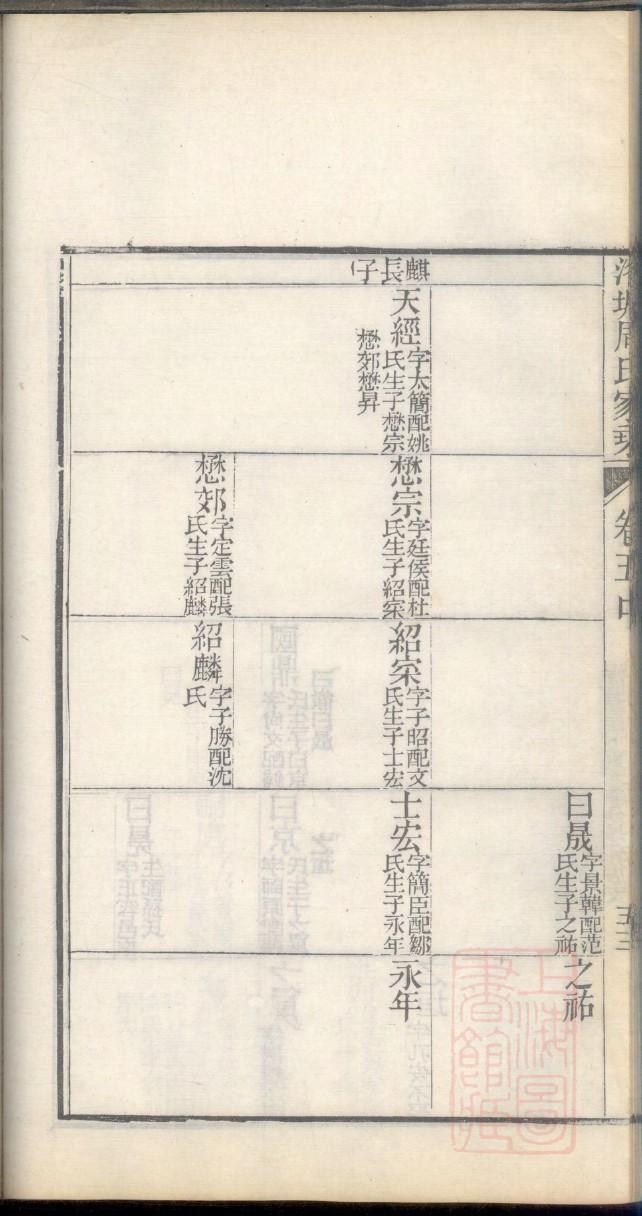 周氏家乘
卷五中
五三
曰晟
字景韓配范
氏生子之祐
之祐
麒長子
天經
字太簡配姚
氏生子懋宗
懋郊懋昇
懋宗
字廷侯配杜
氏生子紹寀
紹寀
字子昭配文
氏生子士宏
士宏
字簡臣配鄒
氏生子永年
永年
懋郊
字定雲配張
氏生子紹麟
紹麟
字子勝配沈
氏
上海圖
書館藏